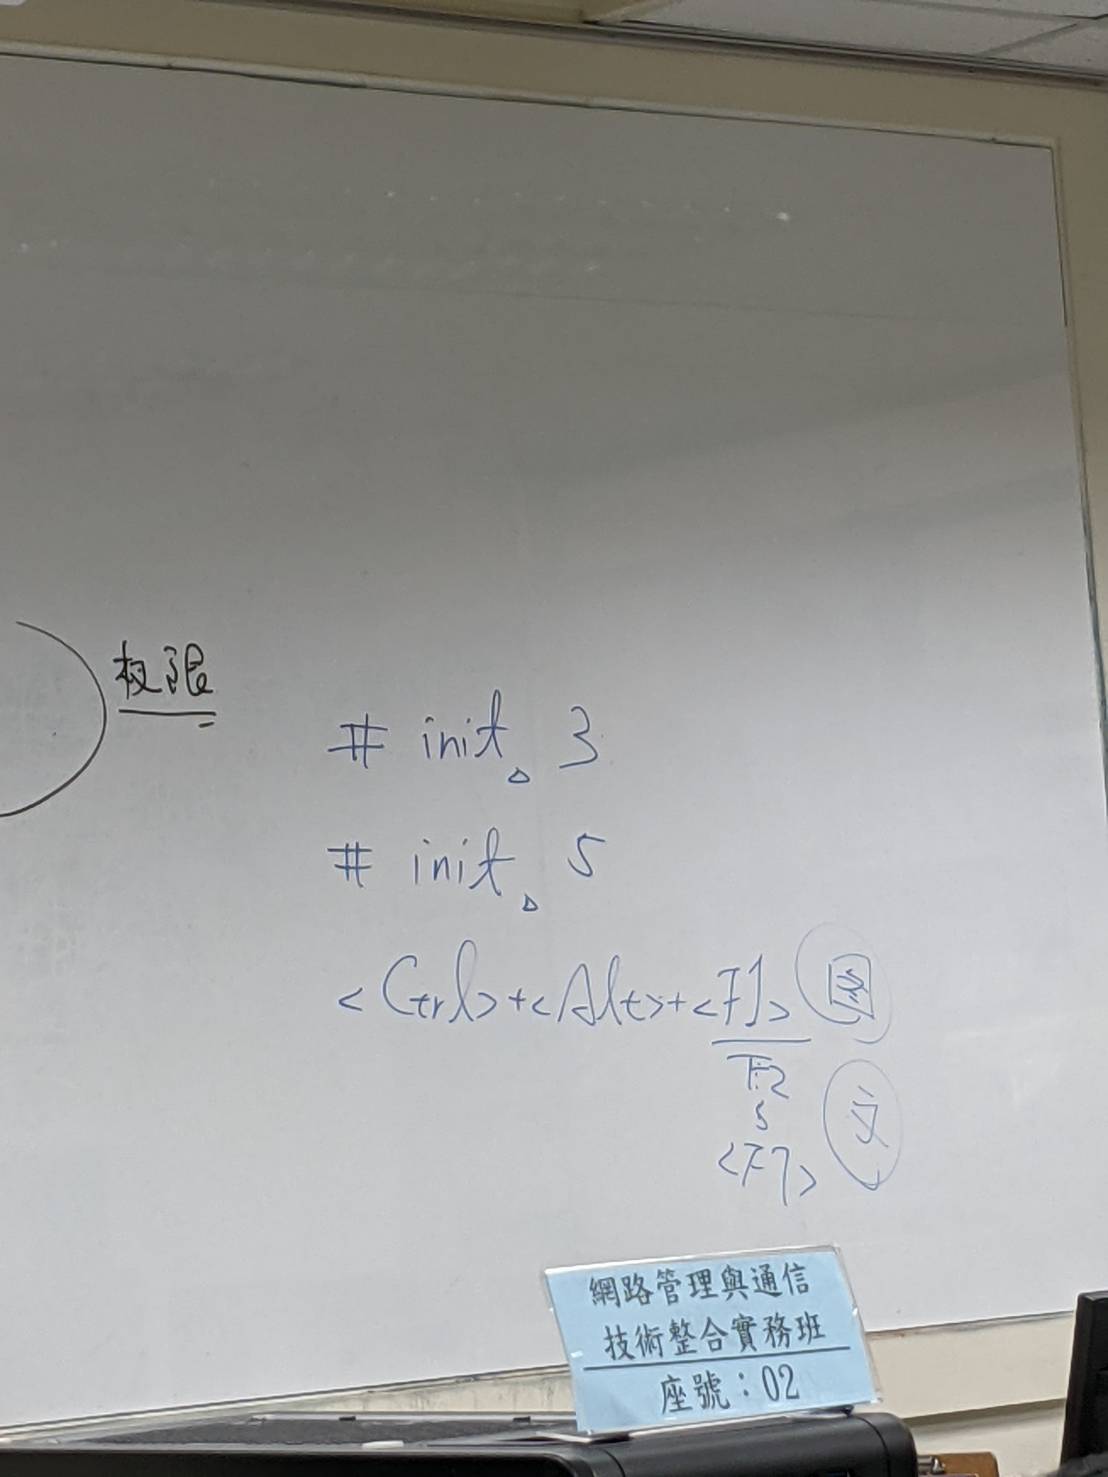 权限
# init△ 3
# init△ 5
<Ctrl>+<Alt>+<F1> 图
F2
<F7> 文
網路管理與通信
技術整合實務班
座號：02